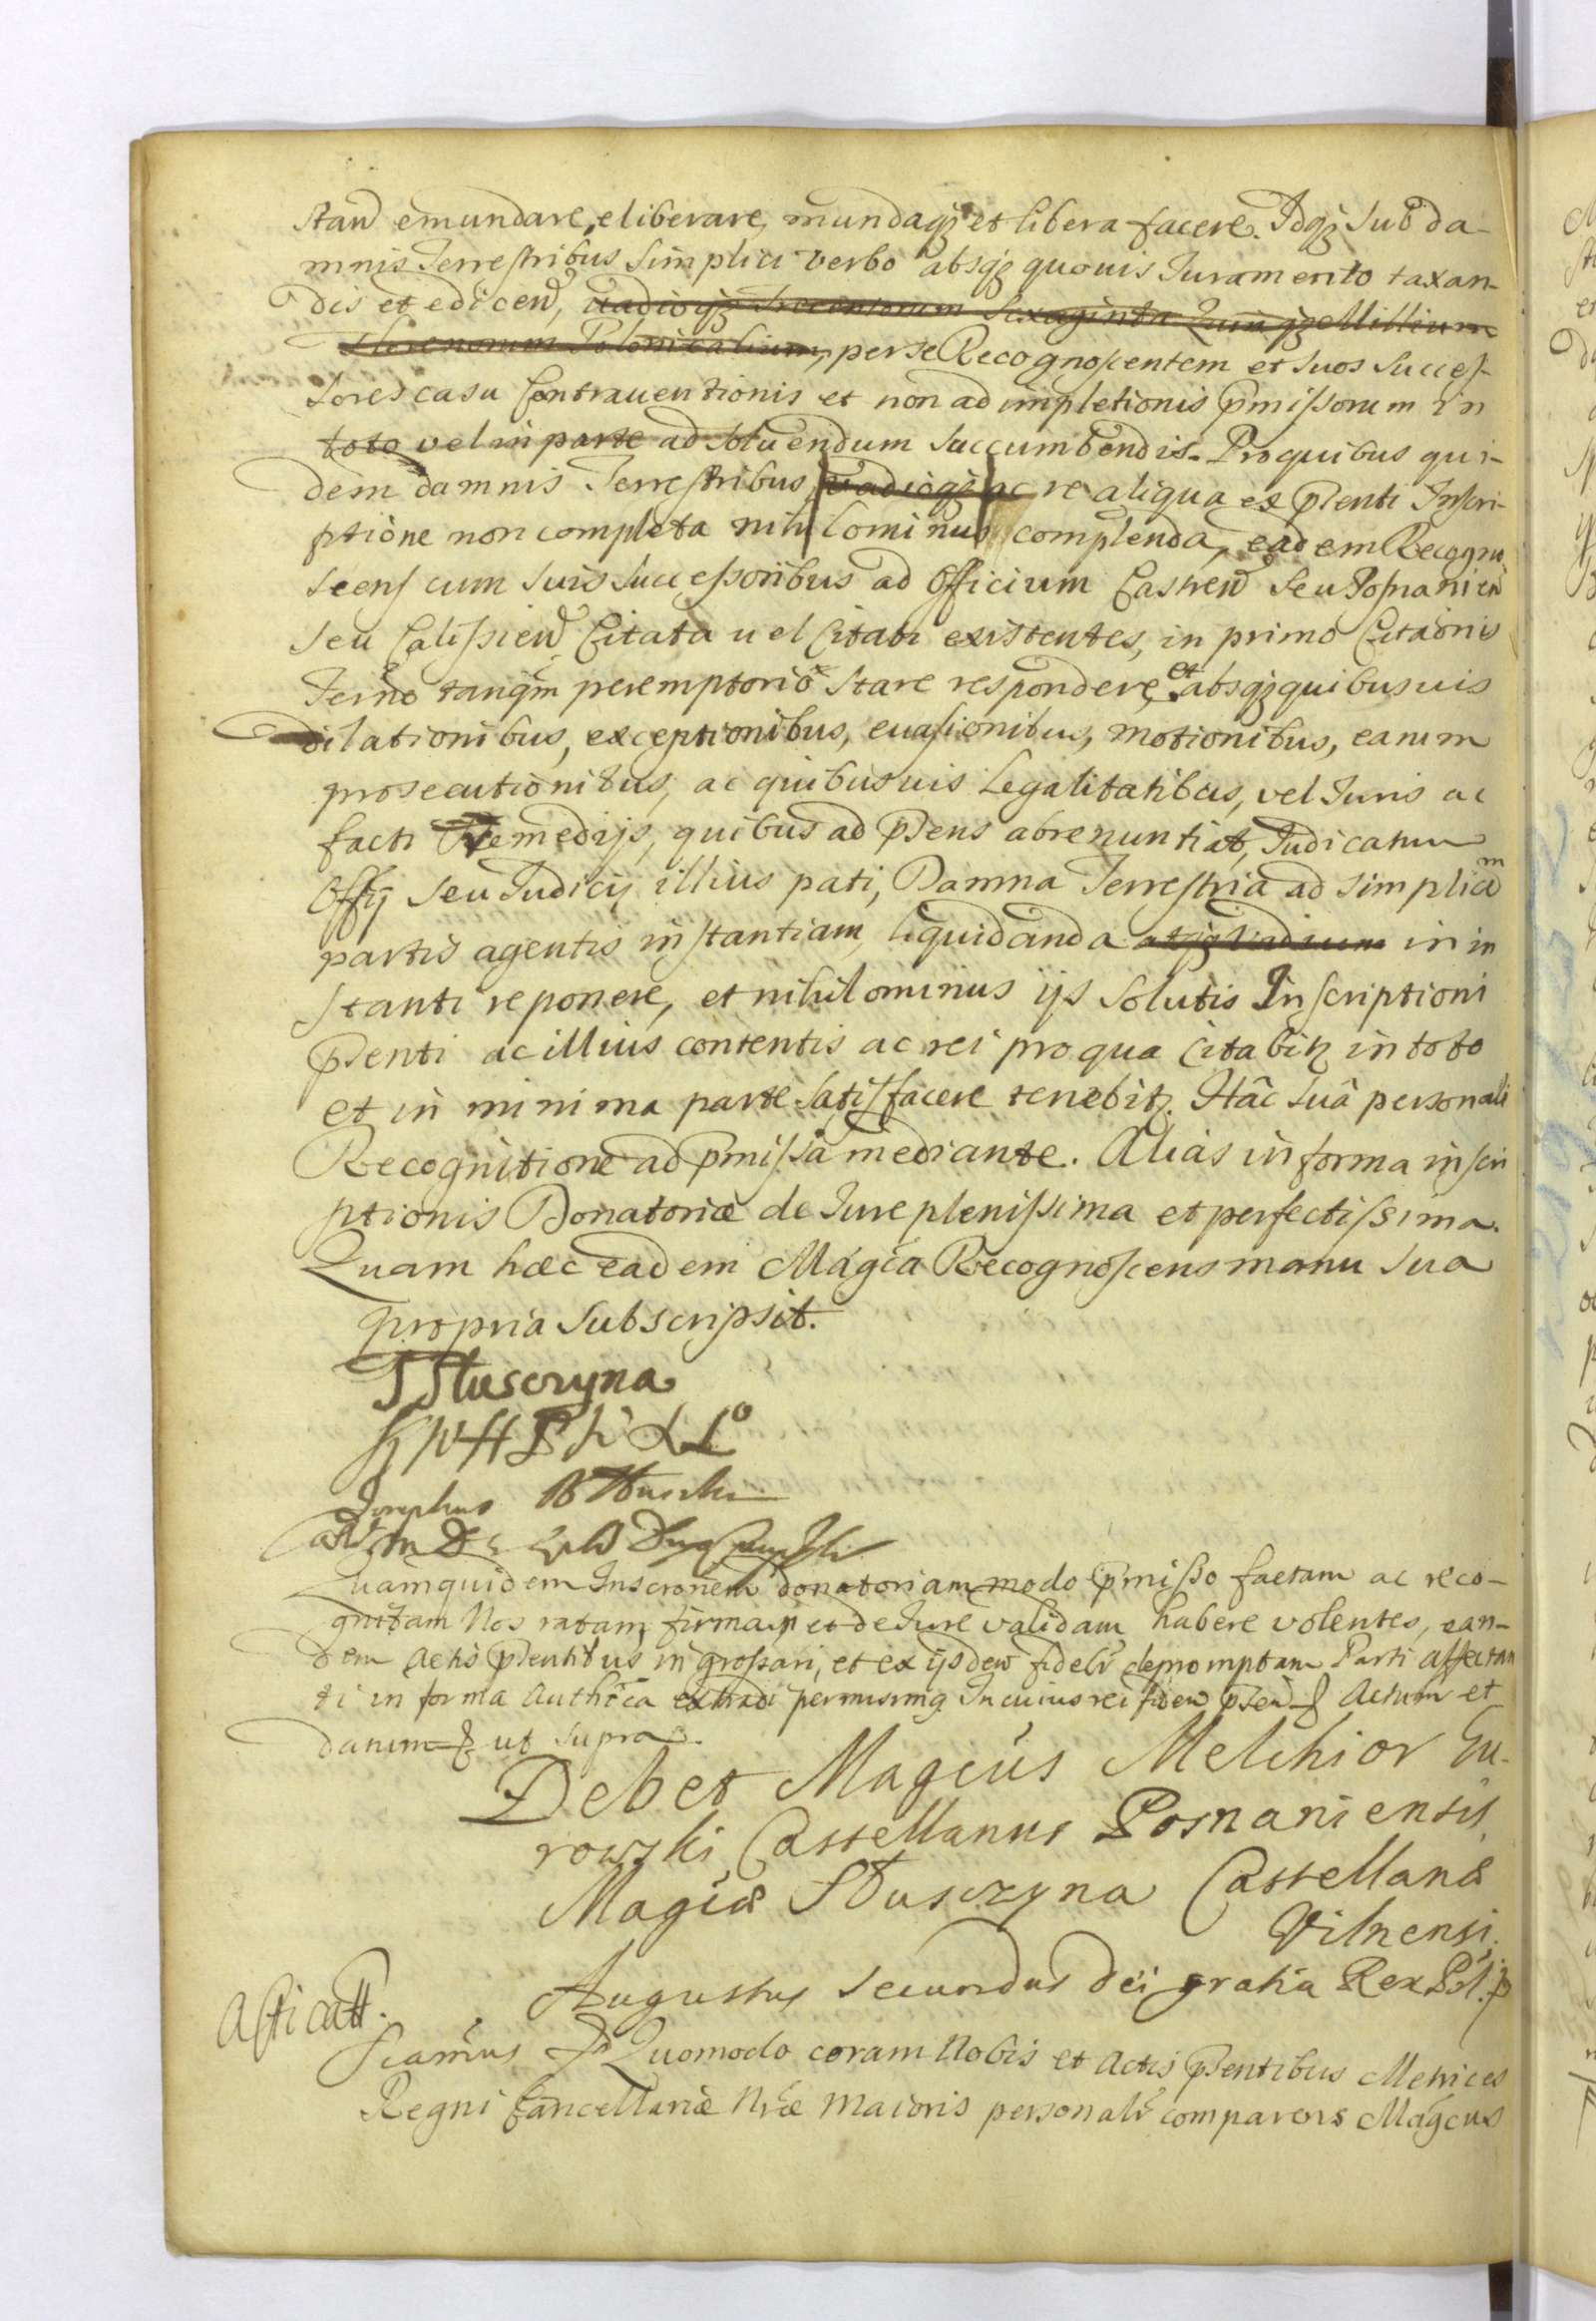 stand emundare, eliberare, mundaqz et libera facere. Idqz sub da-
mnis Terrestribus simplici verbo absqz quouis Iuramento taxan-
dis et edicend, vadioqz Trecentorum Sexaginta Quinqze Millium
Florenorum Polonicalium, per se Recognoscentem et suos Succes-
sores casu Contrauentionis et non adimpletionis pmissorum in
toto vel in parte ad soluendum succumbendis. Pro quibus qui-
dem damnis Terrestribus, vadioqz ac re aliqua ex pnti Inscri-
ptione non completa nihilominus complenda, eadem Recogno
scens cum suis successoribus ad Officium Castren seu Posnanien
seu Calissien Citata uel Citati existentes, in primo Citaonis
Termno tanqm peremptorio stare respondere, et absqz quibusuis
dilationibus, exceptionibus, euasionibus, motionibus, earum
prosecutionibus, ac quibusuis Legalitatibus, vel Iuris ac
facti Remedijs, quibus ad pns abrenuntiat, Iudicatum
Offij seu Iudicij illius pati, Damna Terrestria ad simplicem
partis agentis instantiam, liquidanda atqz vadium in in
stanti reponere, et nihilominus ijs solutis Inscriptioni
pnti ac illius contentis ac rei pro qua citabitz in toto
et in minima parte satisfacere tenebitz. Hâc suâ personali
Recognitione ad pmissa mediante. Alias in forma inscri
ptionis Donatoriæ de Iure plenissima et perfectissima.
Quam hæc eadem Magca Recognoscens manu sua
propria subscripsit.
Sluscryna
Josephus
Quamquidem Inscronem donatoriam modo pmisso factam ac reco-
gnitam Nos ratam, firmam et de Iure validam habere volentes, ean-
dem Actis pntibus ingrossari, et ex ijsdem fideli depromptam Parti affectan
ti in forma Authca extradi permisimg. In cuius rei fidem Actum et
datum ut supra.
Debet Magcus Melchior Gu-
rowski Castellanus Posnaniensis
Magcæ Sluszczyna Castellanæ
Vilnensi.
Augustus secundus dei gratia Rex Pol. p
Scamus Quomodo coram Nobis et Actis pntibus Metrices
Regni Cancellariæ Nræ Maioris personalr comparens Magcus